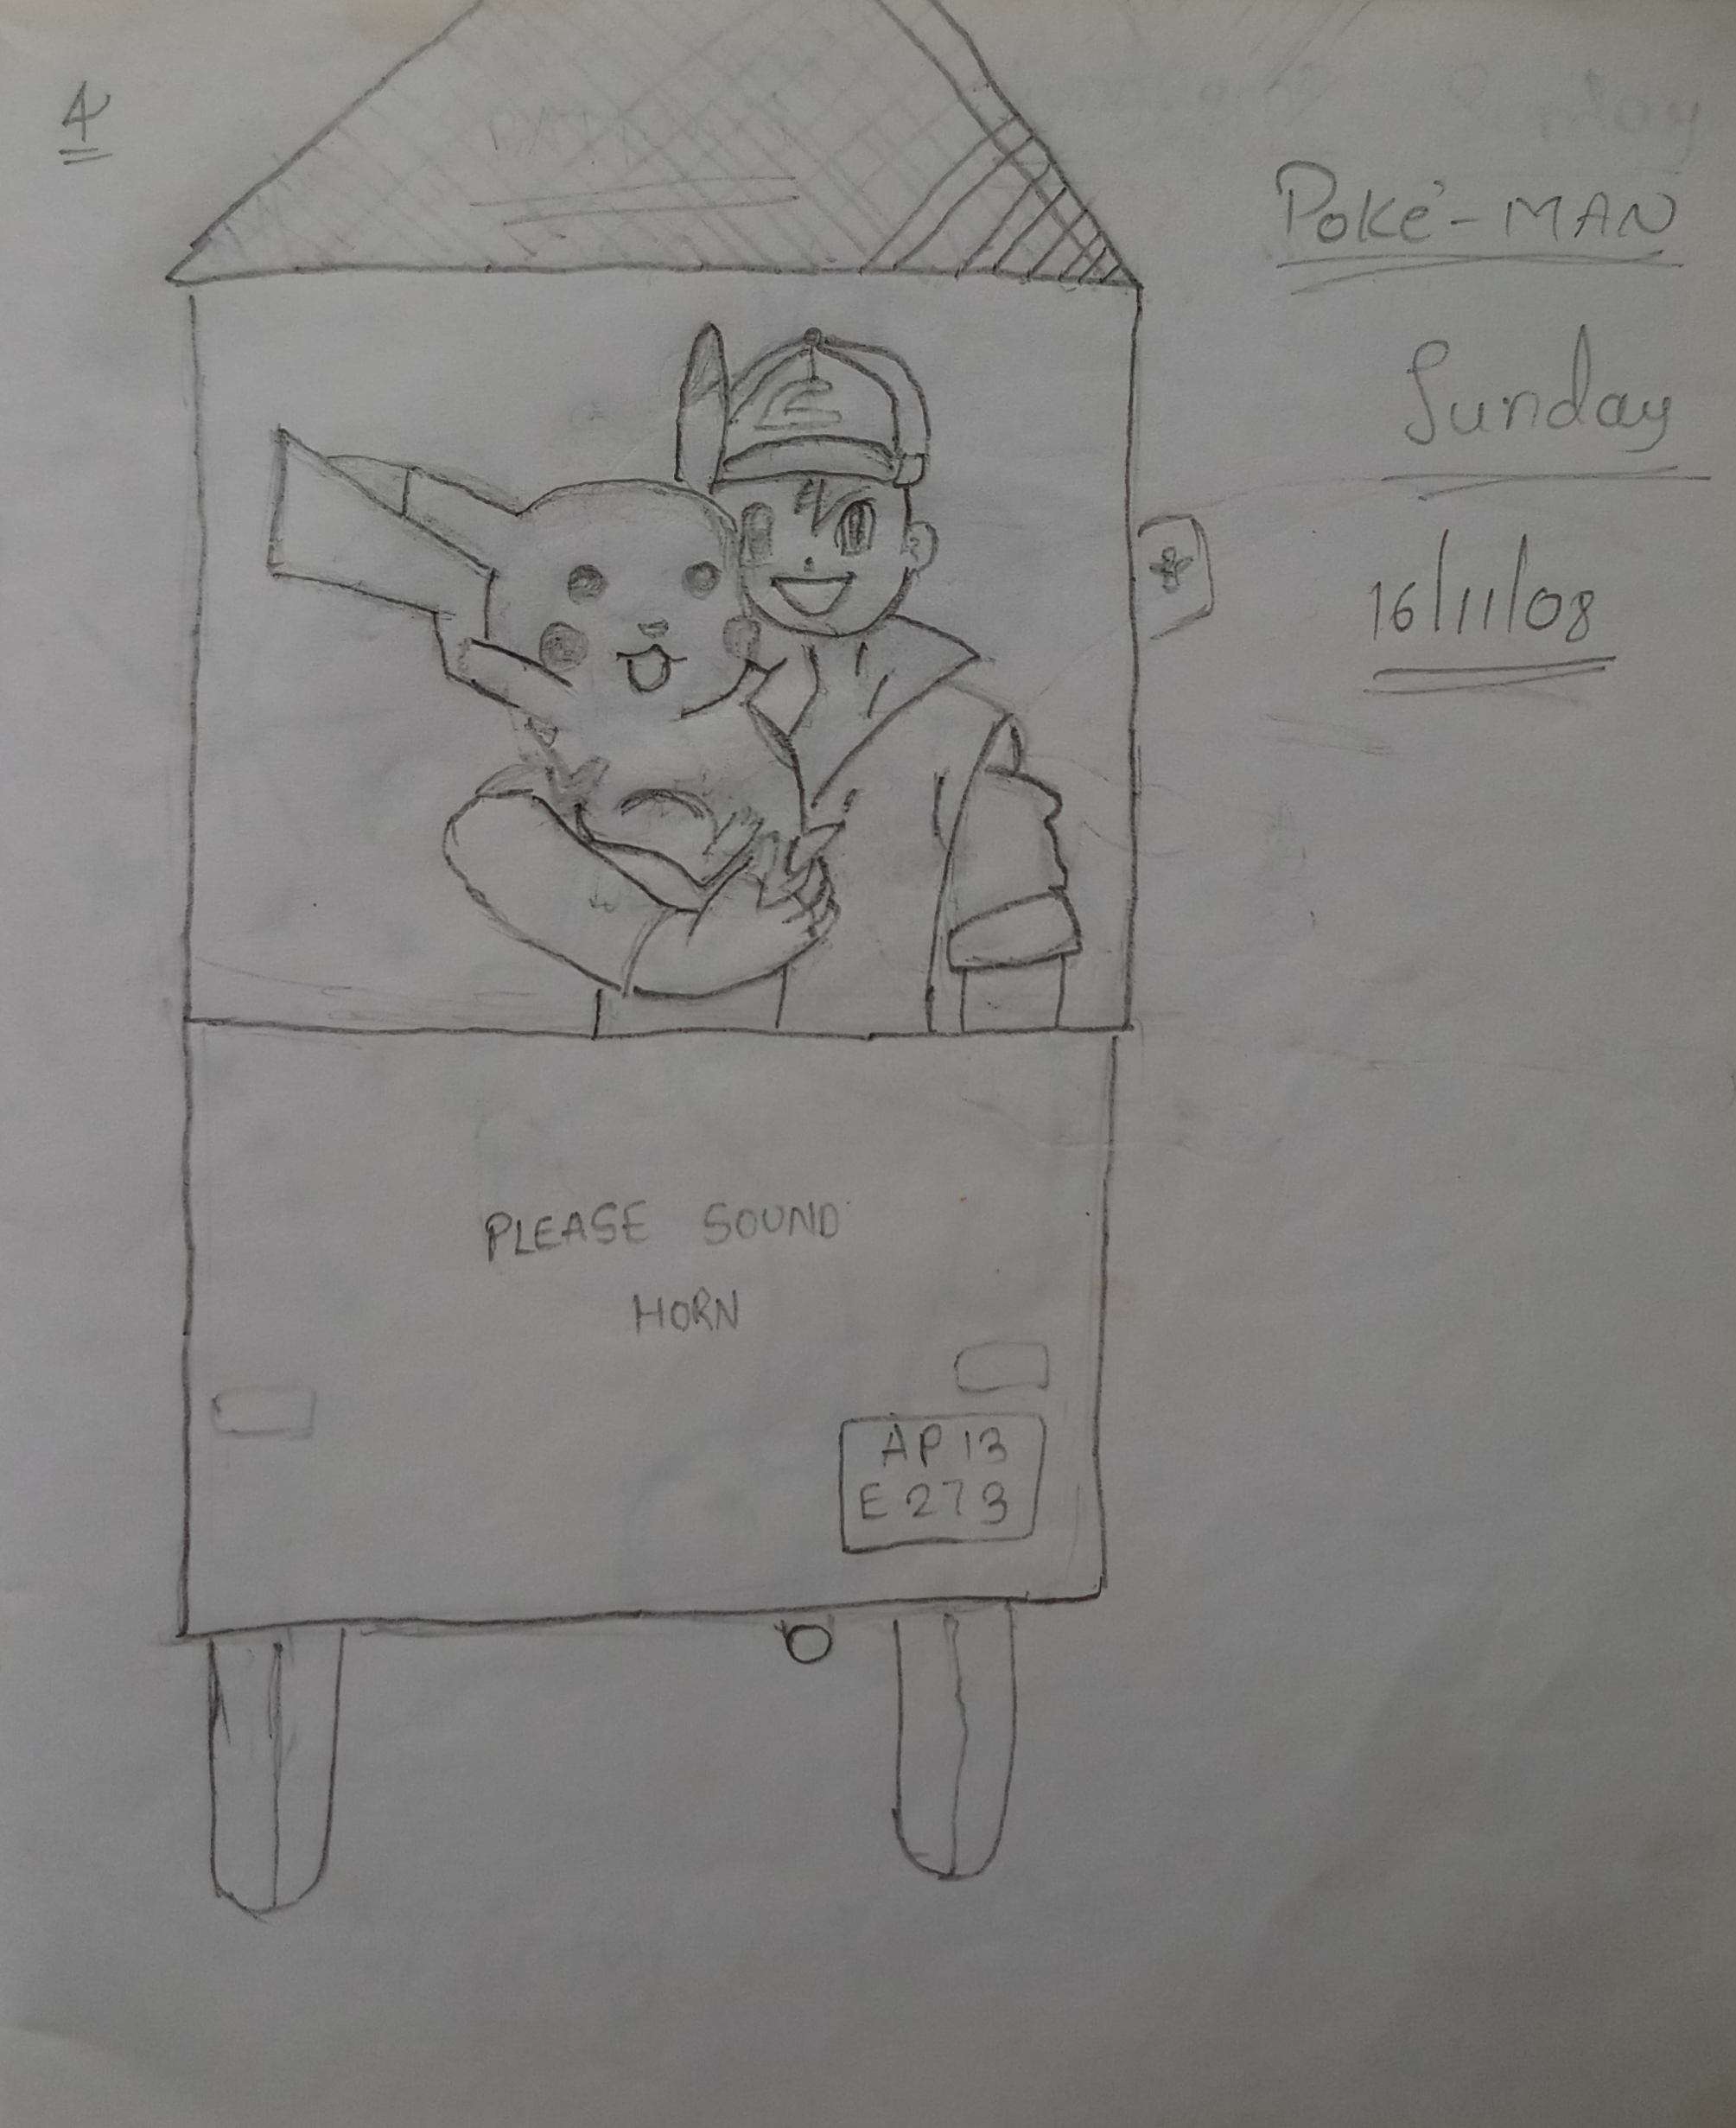 4
Poké-MAN
Sunday
16/11/08
PLEASE SOUND
HORN
AP 13
E 273